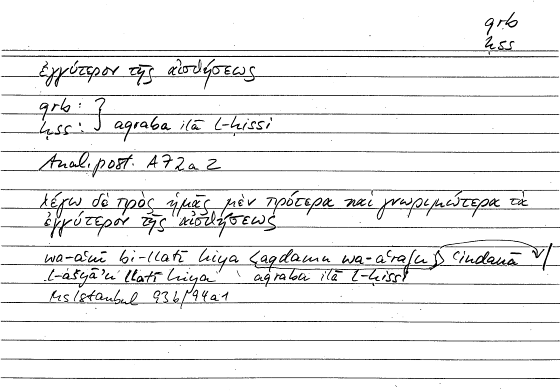 qrb
ḥss
ἐγγύτερον τῆς αἰσθήσεως
qrb:
ḥss: } aqraba ilā l-ḥissi
Anal. post. A 72a2
λέγω δὲ πρὸς ἡμᾶς μὲν πρότερα καὶ γνωριμώτερα τὰ
ἐγγύτερον τῆς αἰσθήσεως
wa-aʿnī bi-llatī hiya <aqdamu wa-aʿrafu> ʿindanā
l-ašyāʾu llatī hiya aqraba ilā l-ḥissi
Ms Istanbul 93b/94a1